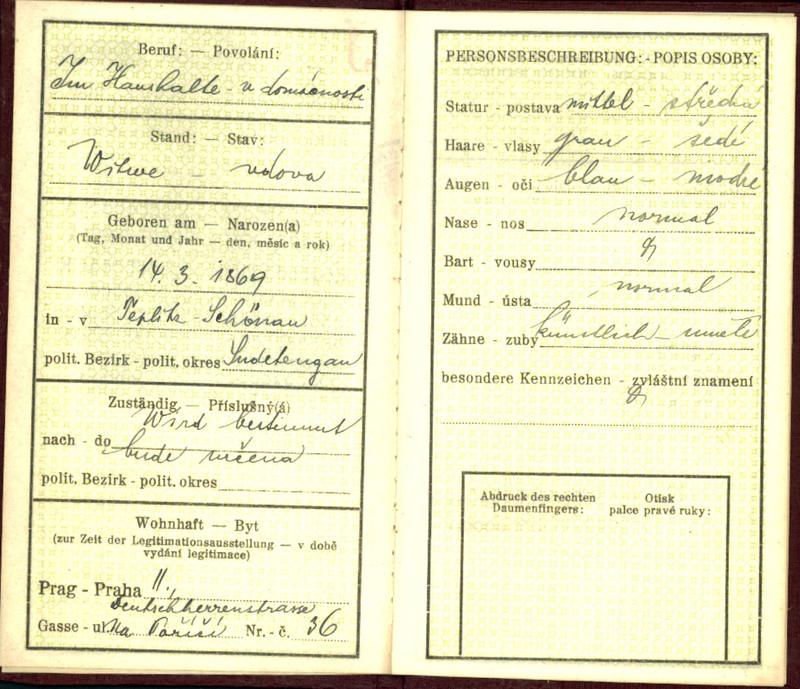 Beruf: — Povolání:
Im Haushalte - v domácnosti
Stand: — Stav:
Witwe - vdova
Geboren am — Narozen(a)
(Tag, Monat und Jahr — den, měsíc a rok)
14. 3. 1869
in - v Teplitz-Schönau
polit. Bezirk - polit. okres Sudetengau
Zuständig — Příslušný(á)
Wird bestimmt
nach - do bude určena
polit. Bezirk - polit. okres
Wohnhaft — Byt
(zur Zeit der Legitimationsausstellung — v době
vydání legitimace)
Prag - Praha II.,
Deutschherrenstrasse
Gasse - ul. Na Poříčí Nr. - č. 36
PERSONSBESCHREIBUNG: - POPIS OSOBY:
Statur - postava mittel - střední
Haare - vlasy grau - šedé
Augen - oči blau - modré
Nase - nos normal
Bart - vousy
Mund - ústa normal
Zähne - zuby künstlich - umělé
besondere Kennzeichen - zvláštní znamení
Abdruck des rechten Daumenfingers:
Otisk palce pravé ruky: